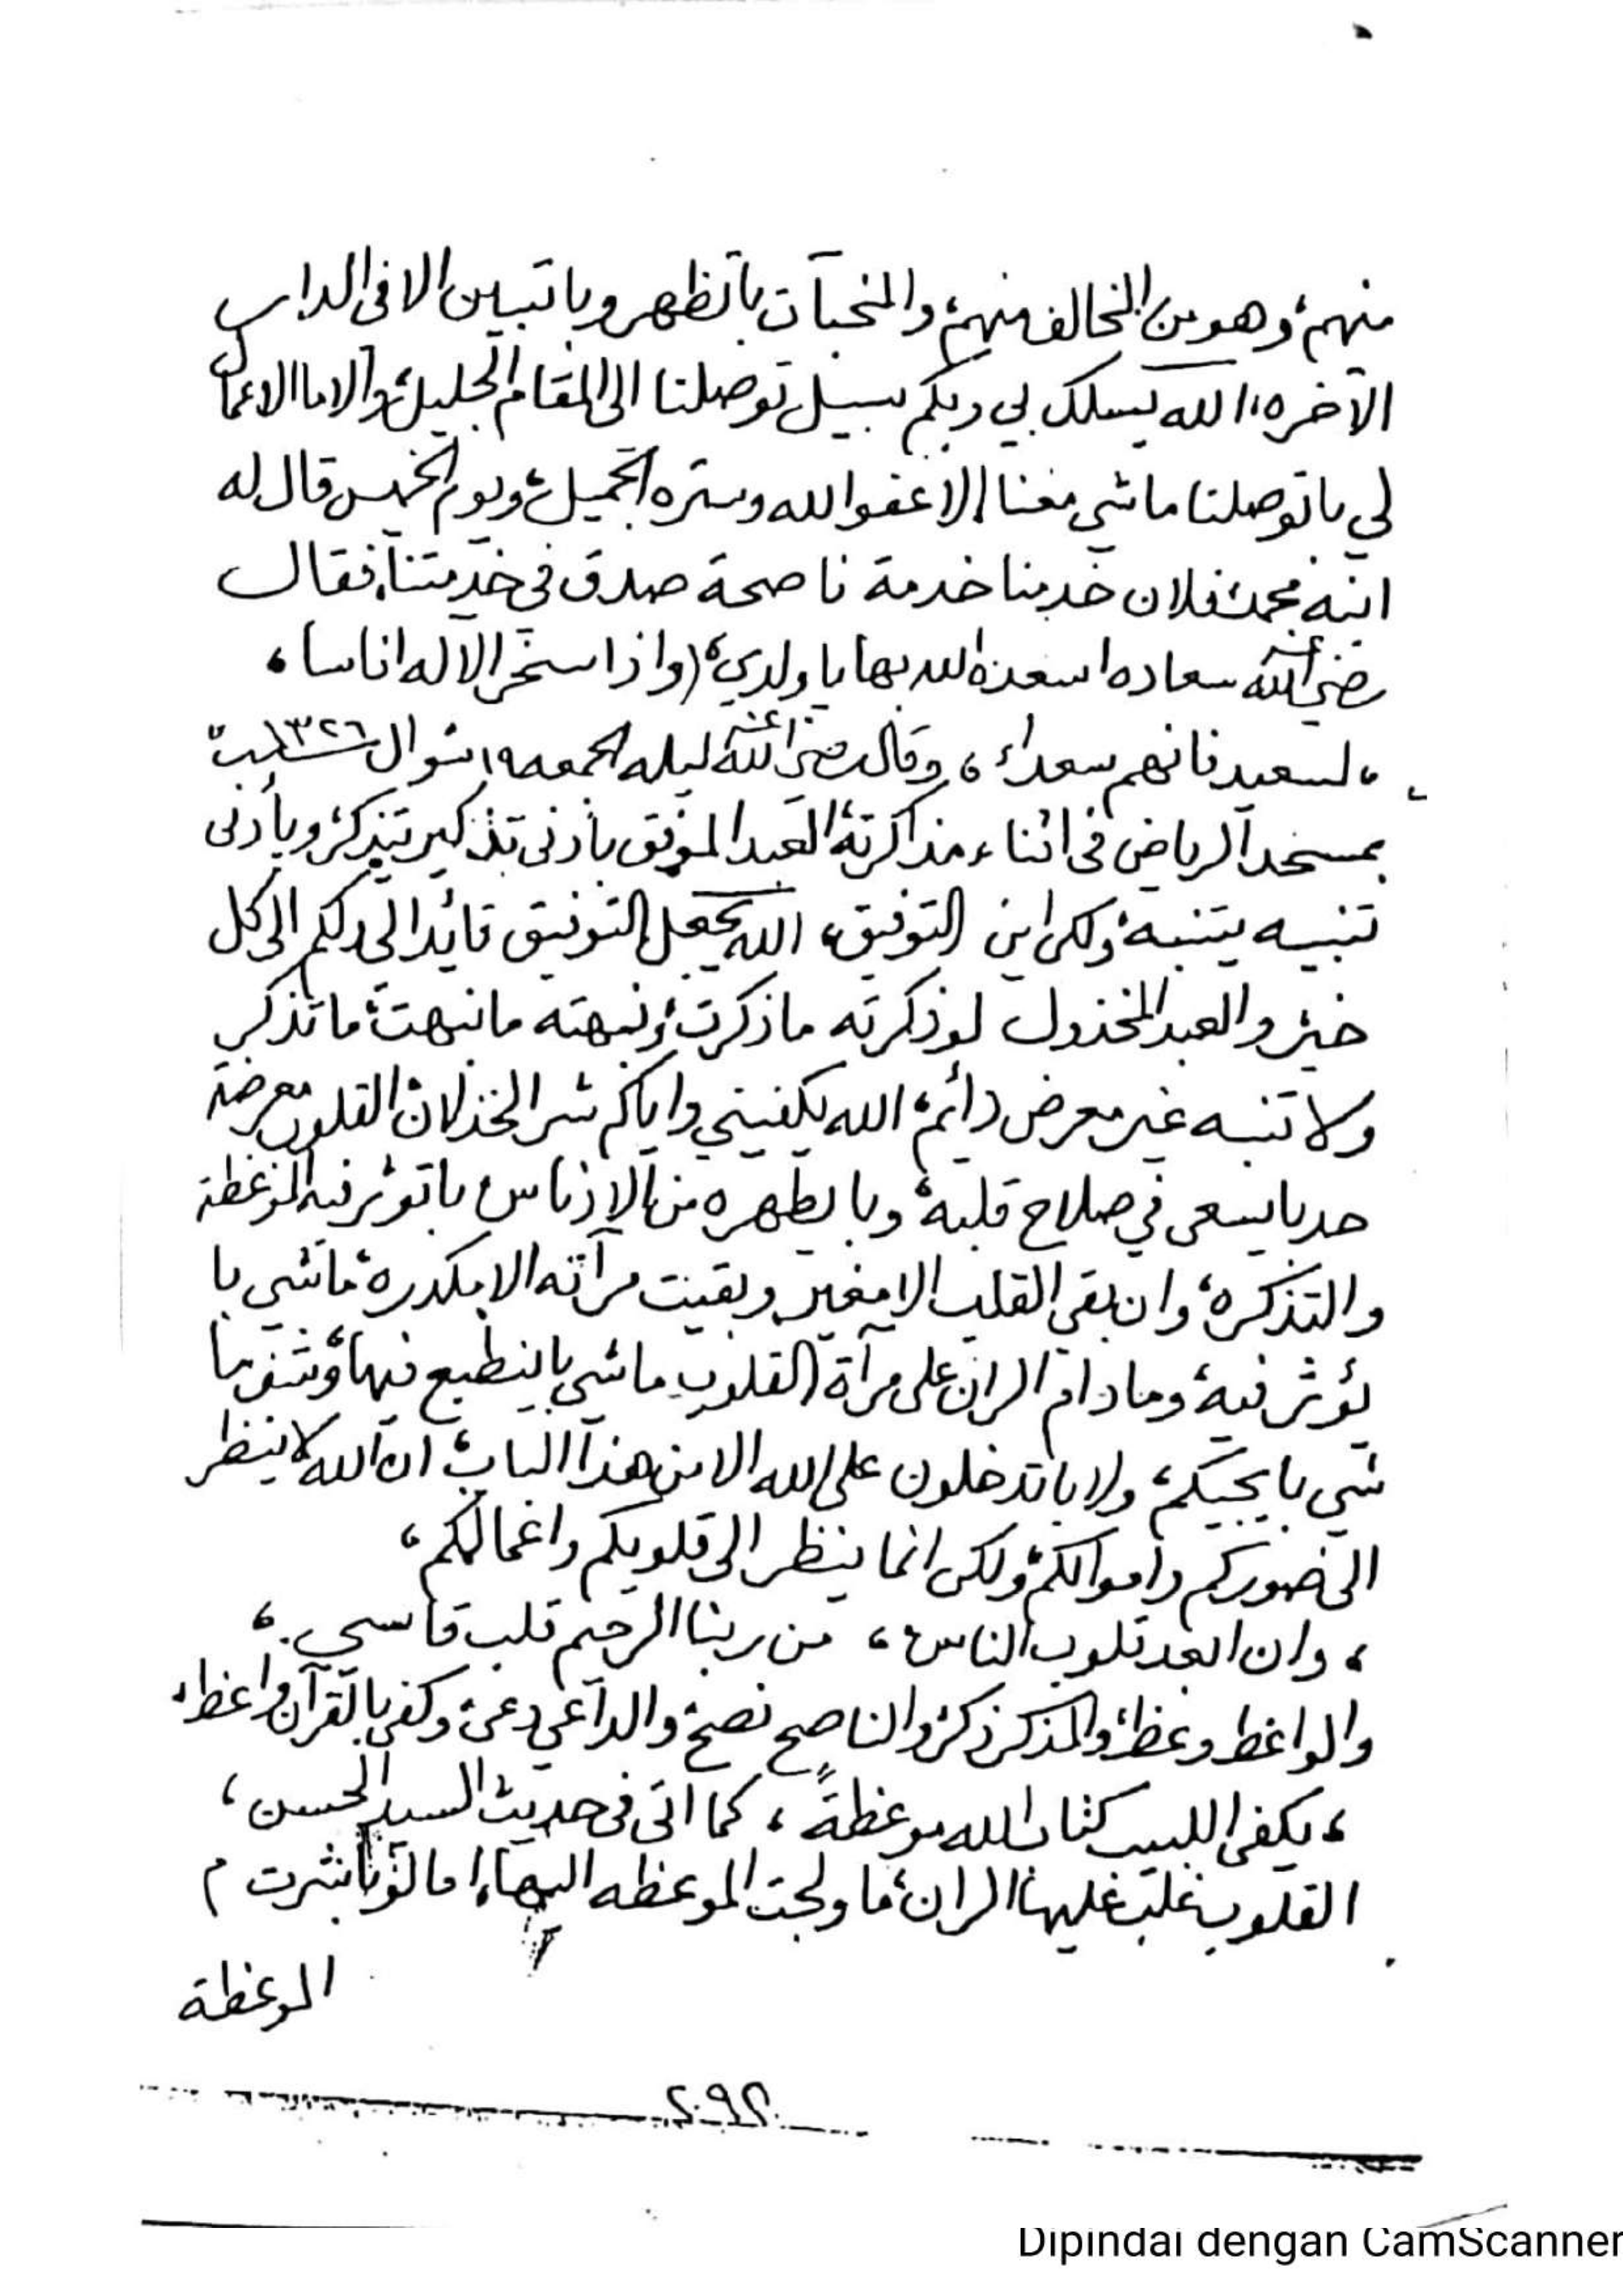 منهم، وهو من المخالف منهم، والمخبآت باتظهر وباتبين الا في الدار
الآخره، الله يسلك بي وبكم سبيل توصلنا الى المقام الجليل، والا ما الاعمال
لي باتوصلنا ماشي معنا الا عفو الله وستره الجميل، ويوم الخميس قال له
ابنه محمد فلان خدمنا خدمة ناصحة صدق في خدمتنا، فقال
رضي الله عنه سعاده اسعده الله بها يا ولدي، (واذا سخر الاله اناسا،
، لسعيد فانهم سعداء، وقال رضي الله عنه ليله الجمعه ١٩ شوال ١٣٢٦
بمسجد الرياض في اثناء مذاكرته، العبد الموفق بأدنى تذكير يتذكر، وبأدنى
تنبيه يتنبه، ولكن اين التوفيق، الله يجعل التوفيق قائدا لي ولكم الى كل
خير، والعبد المخذول لو ذكرته ما ذكرت، ونبهته ما نبهت، ما تذكر
ولا تنبه غير معرض دائم، الله يكفيني واياكم شر الخذلان، القلوب معرضة
حد بايسعى في صلاح قلبه، وبايطهره من الادناس، باتوثر فيه الموعظة
والتذكره، وان بقي القلب الا مغير وبقيت مرآته الا مكدره، ماشي با
يؤثر فيه، وما دام الران على مرآة القلوب ماشي باينطبع فيها، وشفو ما
شي بايجيكم، ولا باتدخلون على الله الا من هذا الباب، ان الله لا ينظر
الى صوركم واموالكم، ولكن انما ينظر الى قلوبكم واعمالكم،
، وان ابعد قلوب الناس، من ربنا الرحيم قلب قاسي،
والواعظ وعظ، والمذكر ذكر، والناصح نصح، والداعي دعى، وكفى بالقرآن واعظا،
، يكفي اللبيب كتاب الله موعظةً، كما اتى في حديث السيد الحسن،
القلوب غلب عليها الران، ما ولجت الموعظه اليها، اما لو باشرت م
الموعظة
٢٩٢
Dipindai dengan CamScanner